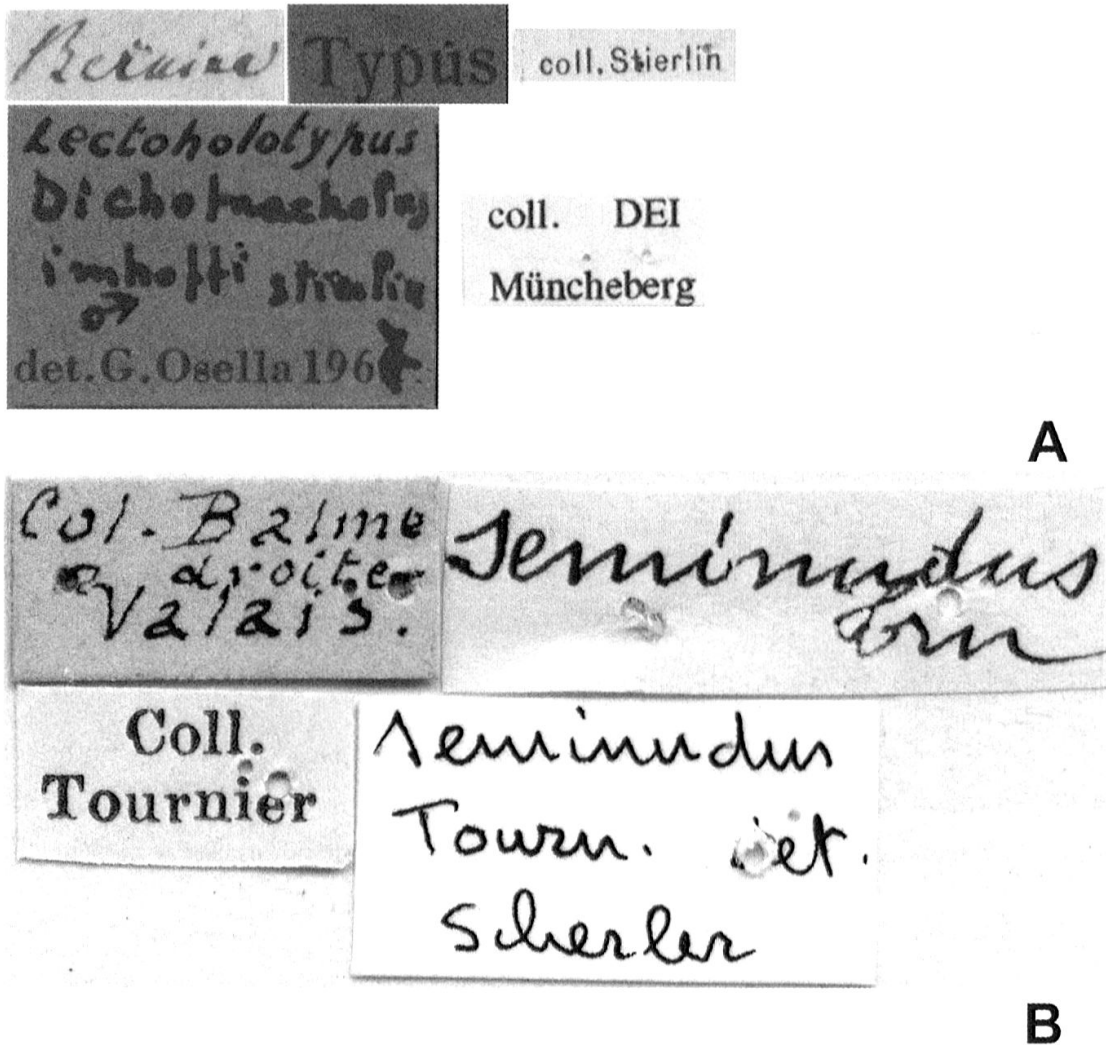 Bernina
Typus
coll. Stierlin
Lectoholotypus
Dichotrachelus
imhoffi stierlin
♂
det. G. Osella 1967.
coll. DEI
Müncheberg
A
Col. Balme
droite
Valais.
seminudus
Trn
Coll.
Tournier
seminudus
Tourn. det.
Scherler
B